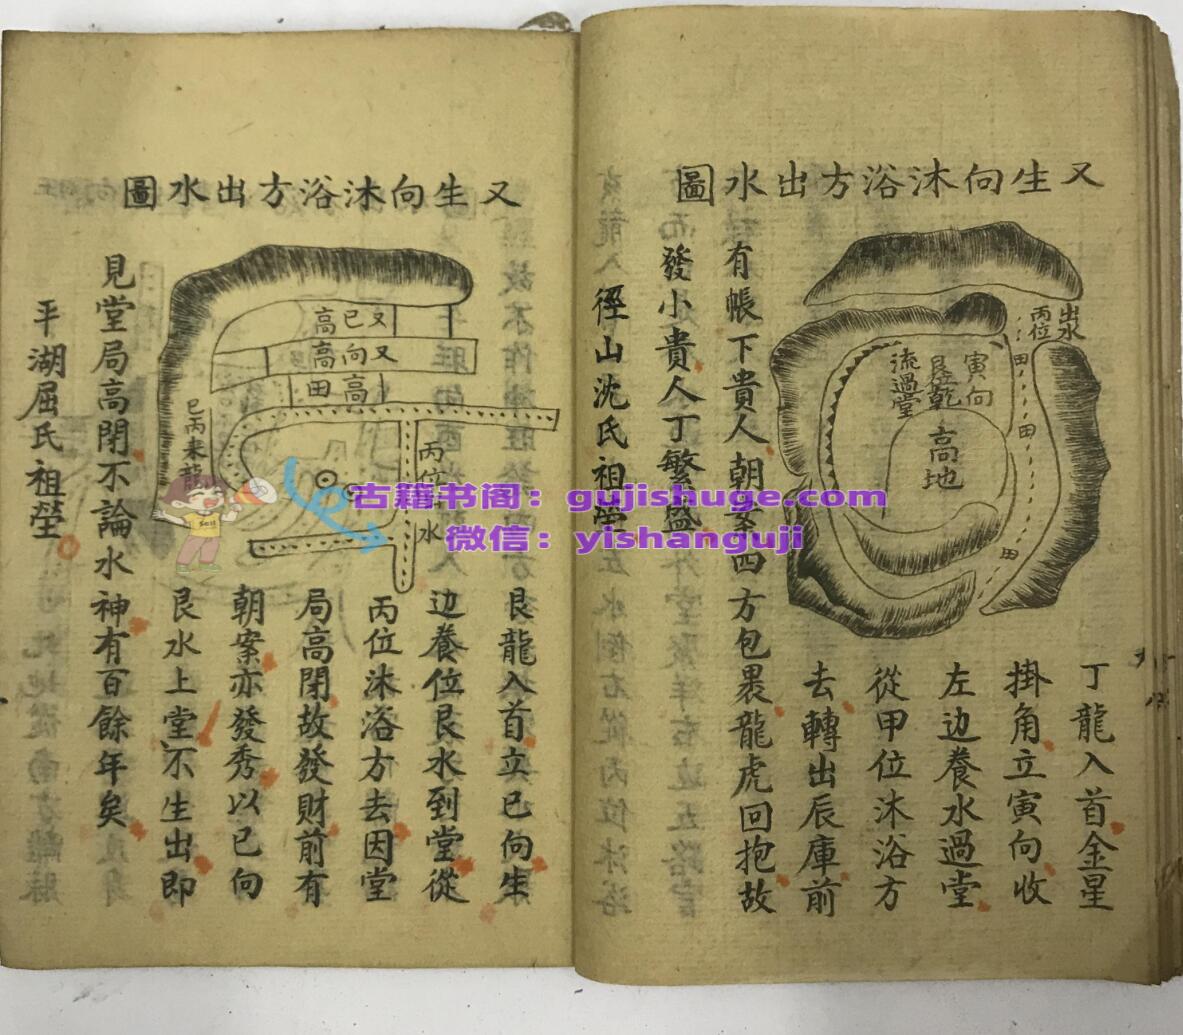 又生向沐浴方出水圖
出水
丙位
寅向
艮位乾
流過堂
高地
田
田
田
丁龍入首金星
掛角立寅向收
左边養水過堂
從甲位沐浴方
去轉出辰庫前
有帳下貴人朝案四方包裹龍虎回抱故
發小貴人丁繁盛
徑山沈氏祖塋
又生向沐浴方出水圖
又巳高
又向高
高田
巳丙来龍
丙位出水
艮龍入首立巳向生
边養位艮水到堂從
丙位沐浴方去因堂
局高閉故發財前有
朝案亦發秀以巳向
艮水上堂不生出即
見堂局高閉不論水神有百餘年矣
平湖屈氏祖塋
古籍书阁：gujishuge.com
微信：yishanguji